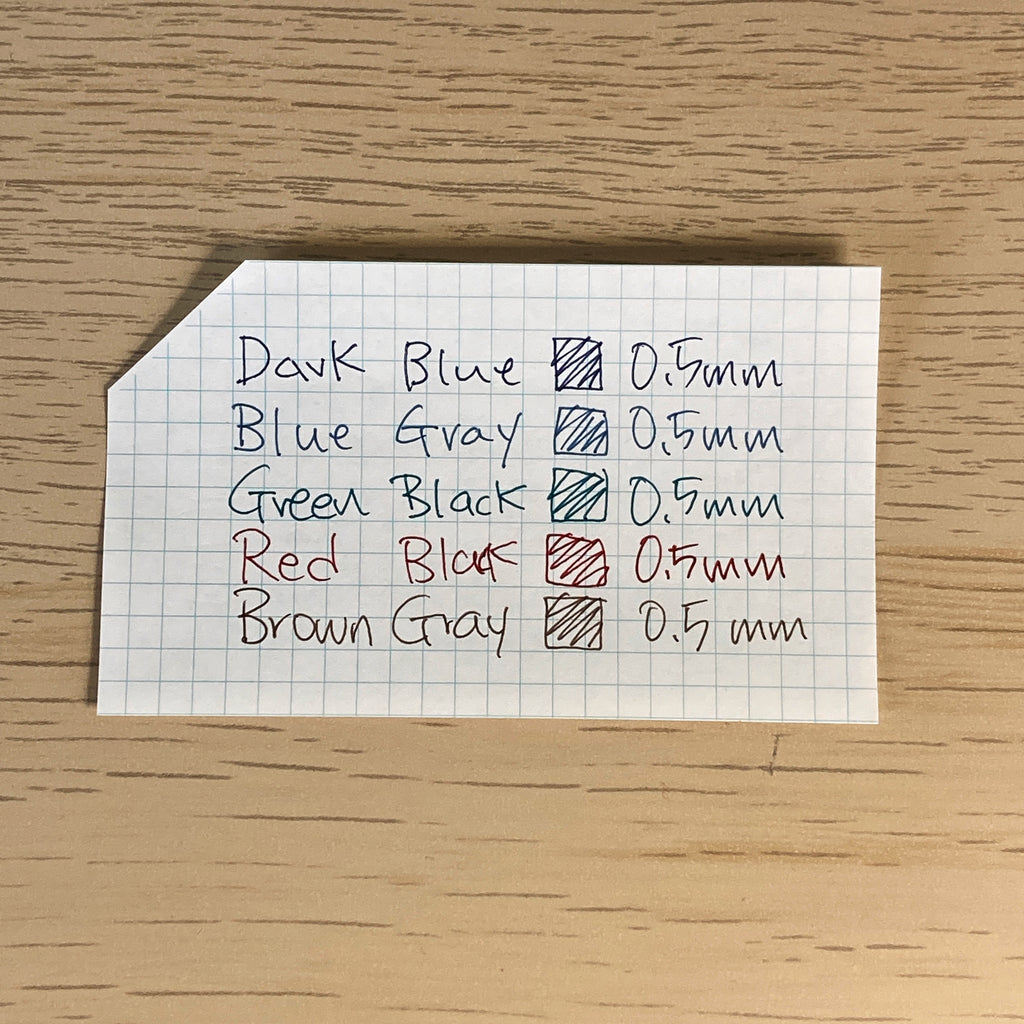 Dark Blue 0.5mm
Blue Gray 0.5mm
Green Black 0.5mm
Red Black 0.5mm
Brown Gray 0.5 mm